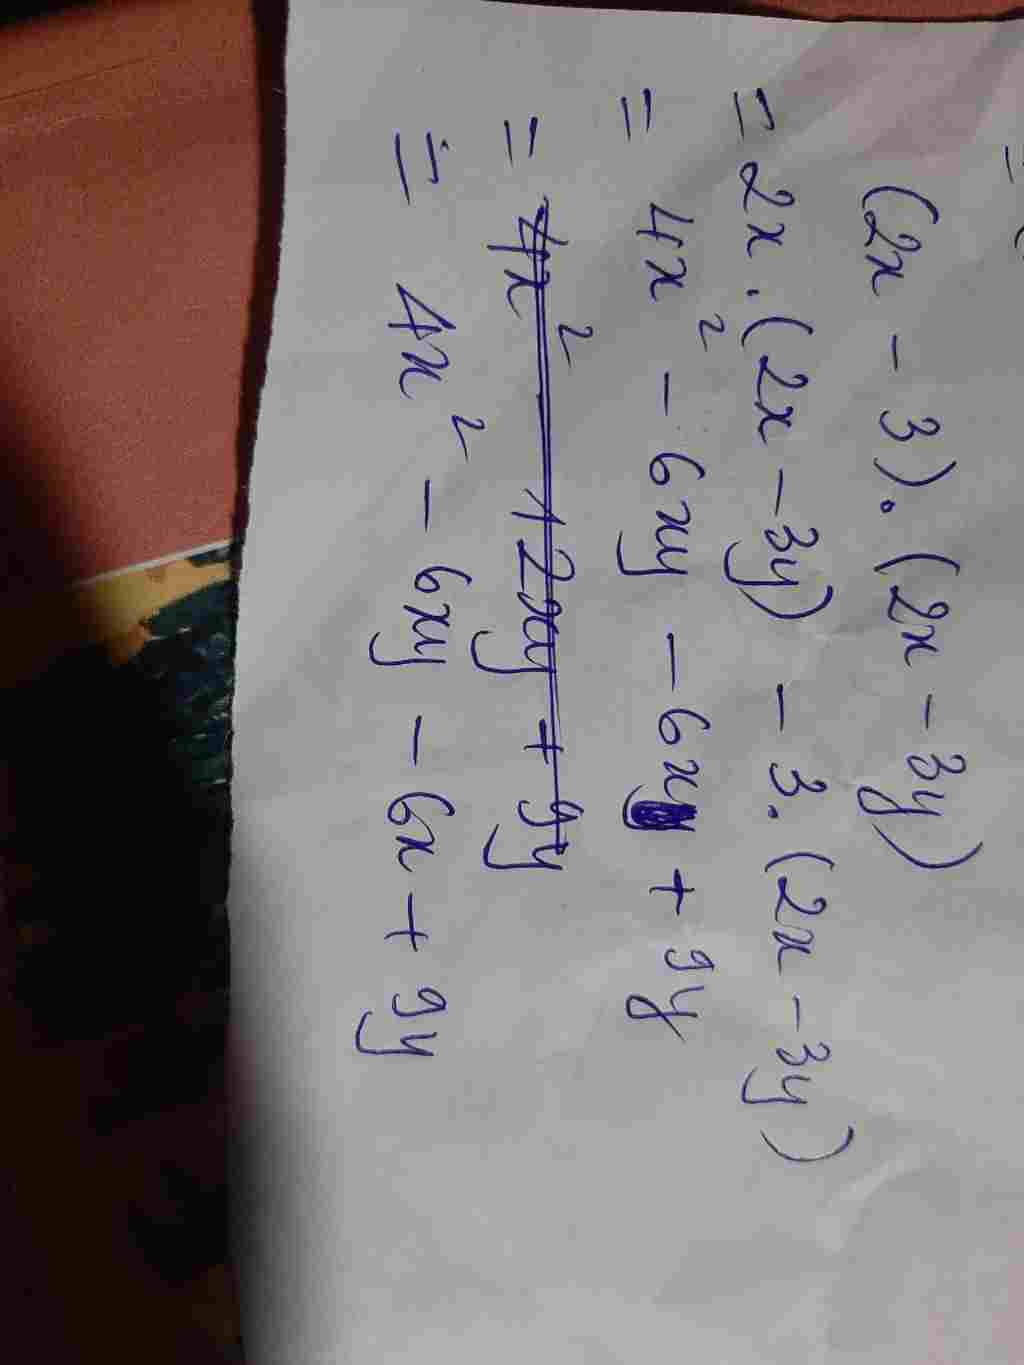 (2x - 3).(2x - 3y)
= 2x.(2x - 3y) - 3.(2x - 3y)
= 4x² - 6xy - 6x + 9y
= 4x² - 12xy + 9y
= 4x² - 6xy - 6x + 9y